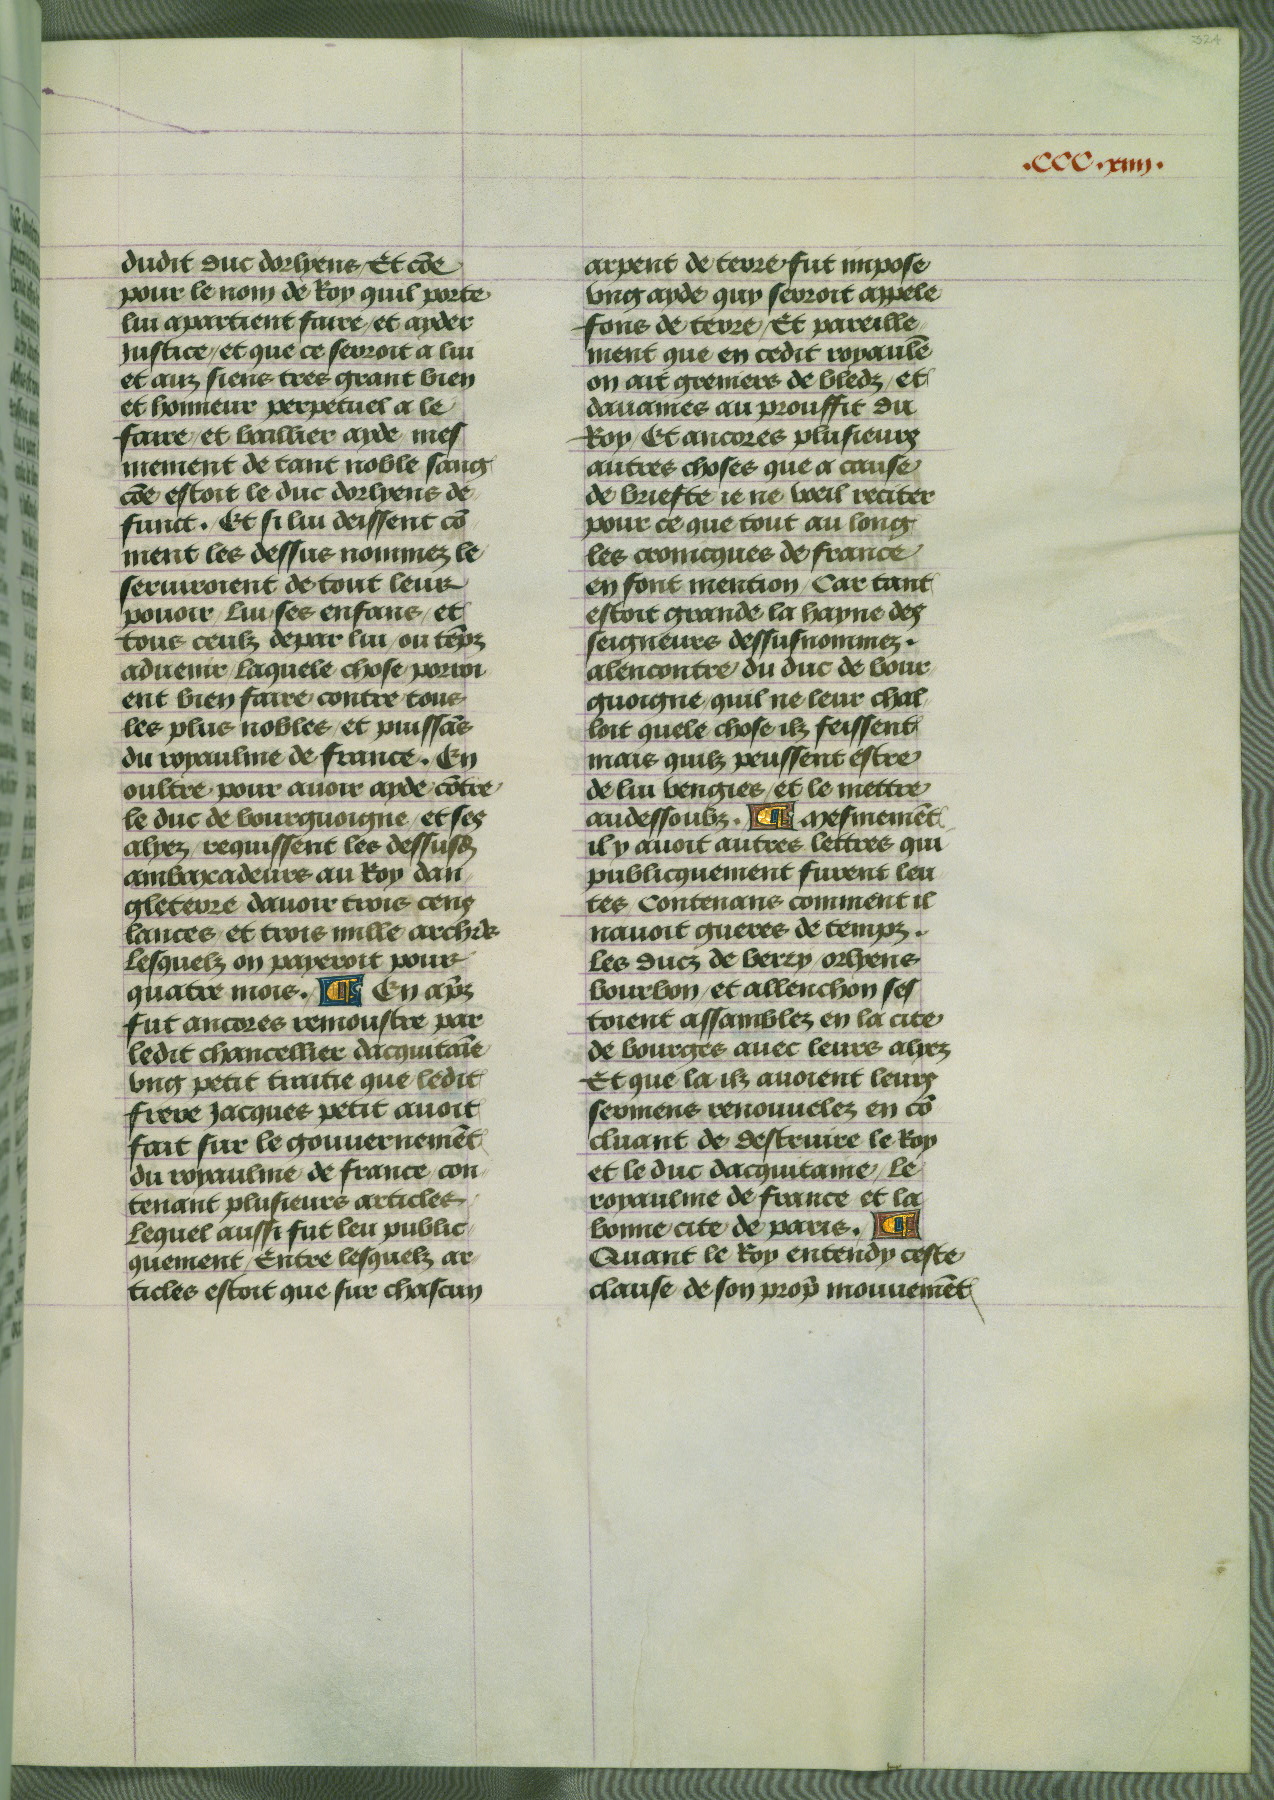 324
.CCC.xiiij.
dudit duc dorlyens / Et cōe
pour le nom de Roy quil porte
lui apartient faire / et ayder
Justice / et que ce seroit a lui
et aux siens tres grant bien
et honneur perpetuel a le
faire / et baillier ayde mes
mement de tant noble sang
cōe estoit le duc dorlyens de
funct . Et si lui deissent cō
ment les dessus nommez le
seruiroient de tout leur
pouoir / Lui / ses enfans / et
tous ceulz depar lui / ou tēps
aduenir / Laquele chose porroi
ent bien faire contre tous
les plus nobles / et puissās
du royaulme de france . En
oultre pour auoir ayde cōtre
le duc de bourguoigne / et ses
alyez / requissent les dessusdis
ambaxadeurs au Roy dan
gleterre dauoir trois cens
lances / et trois mille archiers
Lesquelz on payeroit pour
quatre mois . ¶ En ap̄s
fut ancores remoustre par
ledit chancellier dacquitaīe
vng petit traitie que ledit
frere Jacques petit auoit
fait sur le gouuernemēt
du royaulme de france con
tenant plusieurs articles
Lequel aussi fut leu public
quement / Entre lesquelz ar
ticles estoit que sur chascun
arpent de terre fut impose
vng ayde quy seroit appele
fons de terre / Et pareille
ment que en cedit royaulē
on ait greniers de bledz / et
dauaines au prouffit du
Roy / Et ancores plusieurs
autres choses que a cause
de briefte ie ne vueil reciter
pour ce que tout au long
les cronicques de france
en font mention / Car tant
estoit grande la hayne des
seigneurs dessusnommez .
alencontre du duc de bour
guoigne / quil ne leur chal
loit quele chose ilz feissent
mais quilz peussent estre
de lui vengies / et le mettre
audessoubz . ¶ Mesmemēt
il y auoit autres lettres qui
publicquement furent leu
tes / Contenans comment il
nauoit gueres de temps .
Les ducz de berry / orlyens
bourbon / et allenchon ses
toient assamblez en la cite
de bourges auec leurs alyez
Et que la ilz auoient leurs
sermens renouuelez en cō
cluant de destruire le Roy
et le duc dacquitaine / Le
royaulme de france et la
bonne cite de paris . ¶
Quant le Roy entendy ceste
clause de son prop̄ mouuemēt